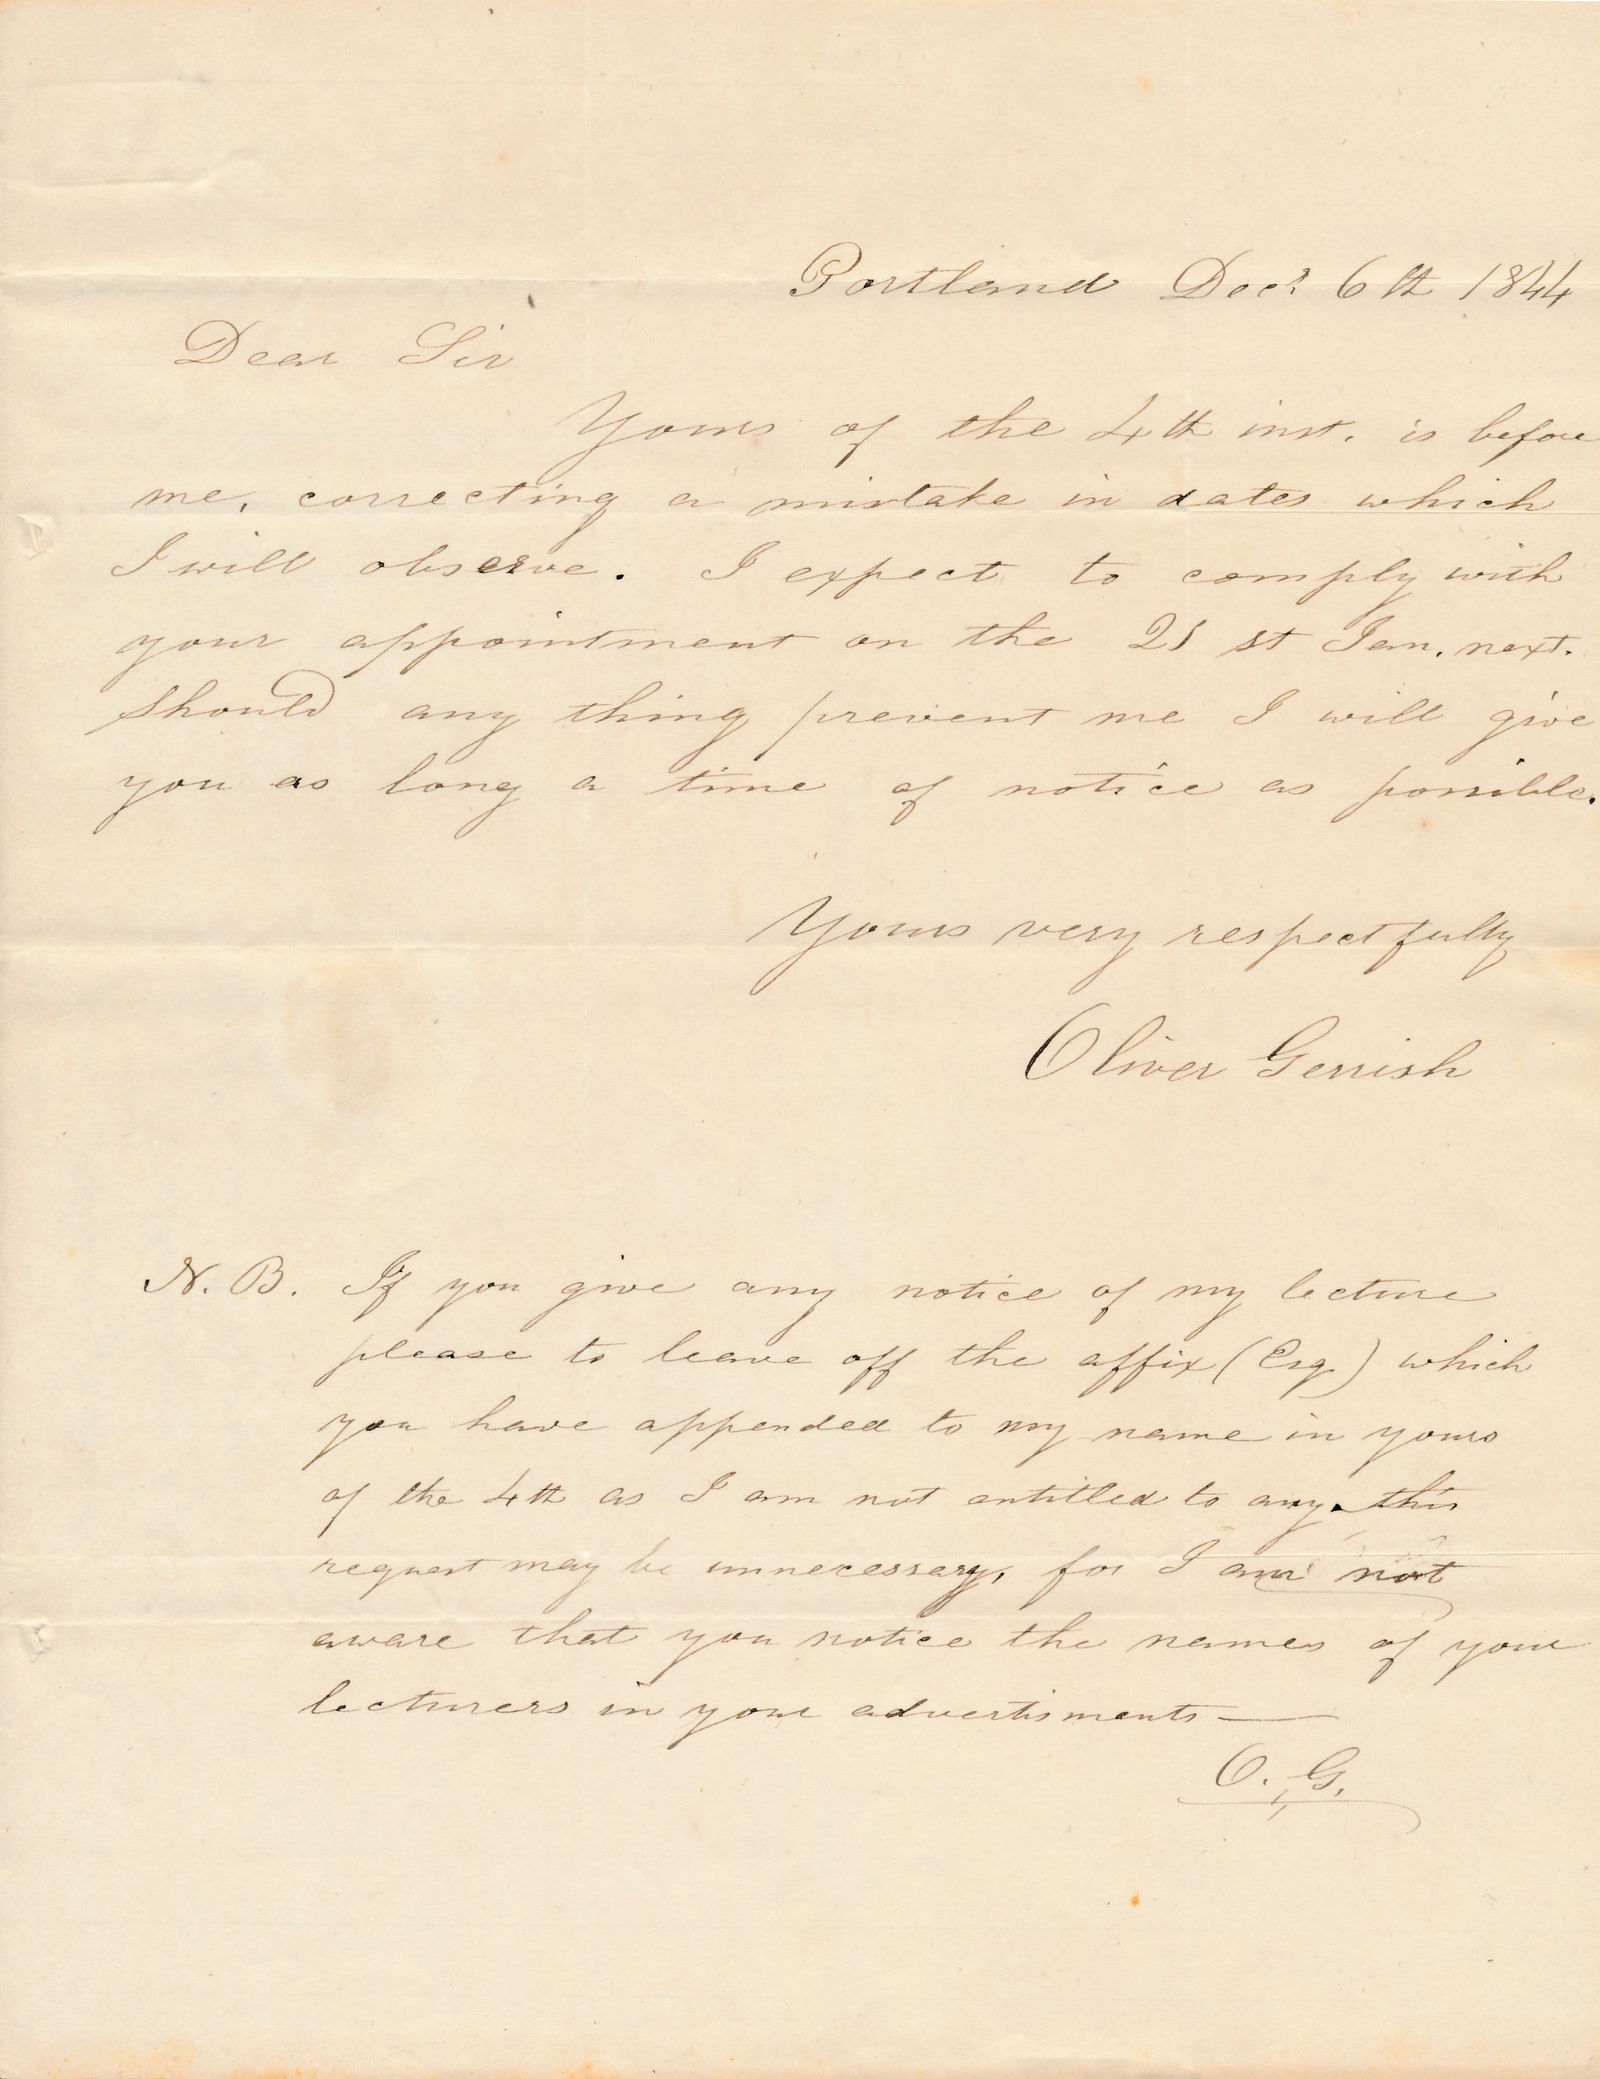 Portland Decr 6th 1844
Dear Sir
Yours of the 4th inst. is before
me, correcting a mistake in dates which
I will observe. I expect to comply with
your appointment on the 21st Jan. next.
should any thing prevent me I will give
you as long a time of notice as possible.
Yours very respectfully
Oliver Gerrish
N. B. If you give any notice of my lecture
please to leave off the affix (Esq.) which
you have appended to my name in yours
of the 4th as I am not entitled to any. this
request may be unnecessary, for I am not
aware that you notice the names of your
lecturers in your advertisments —
O. G.